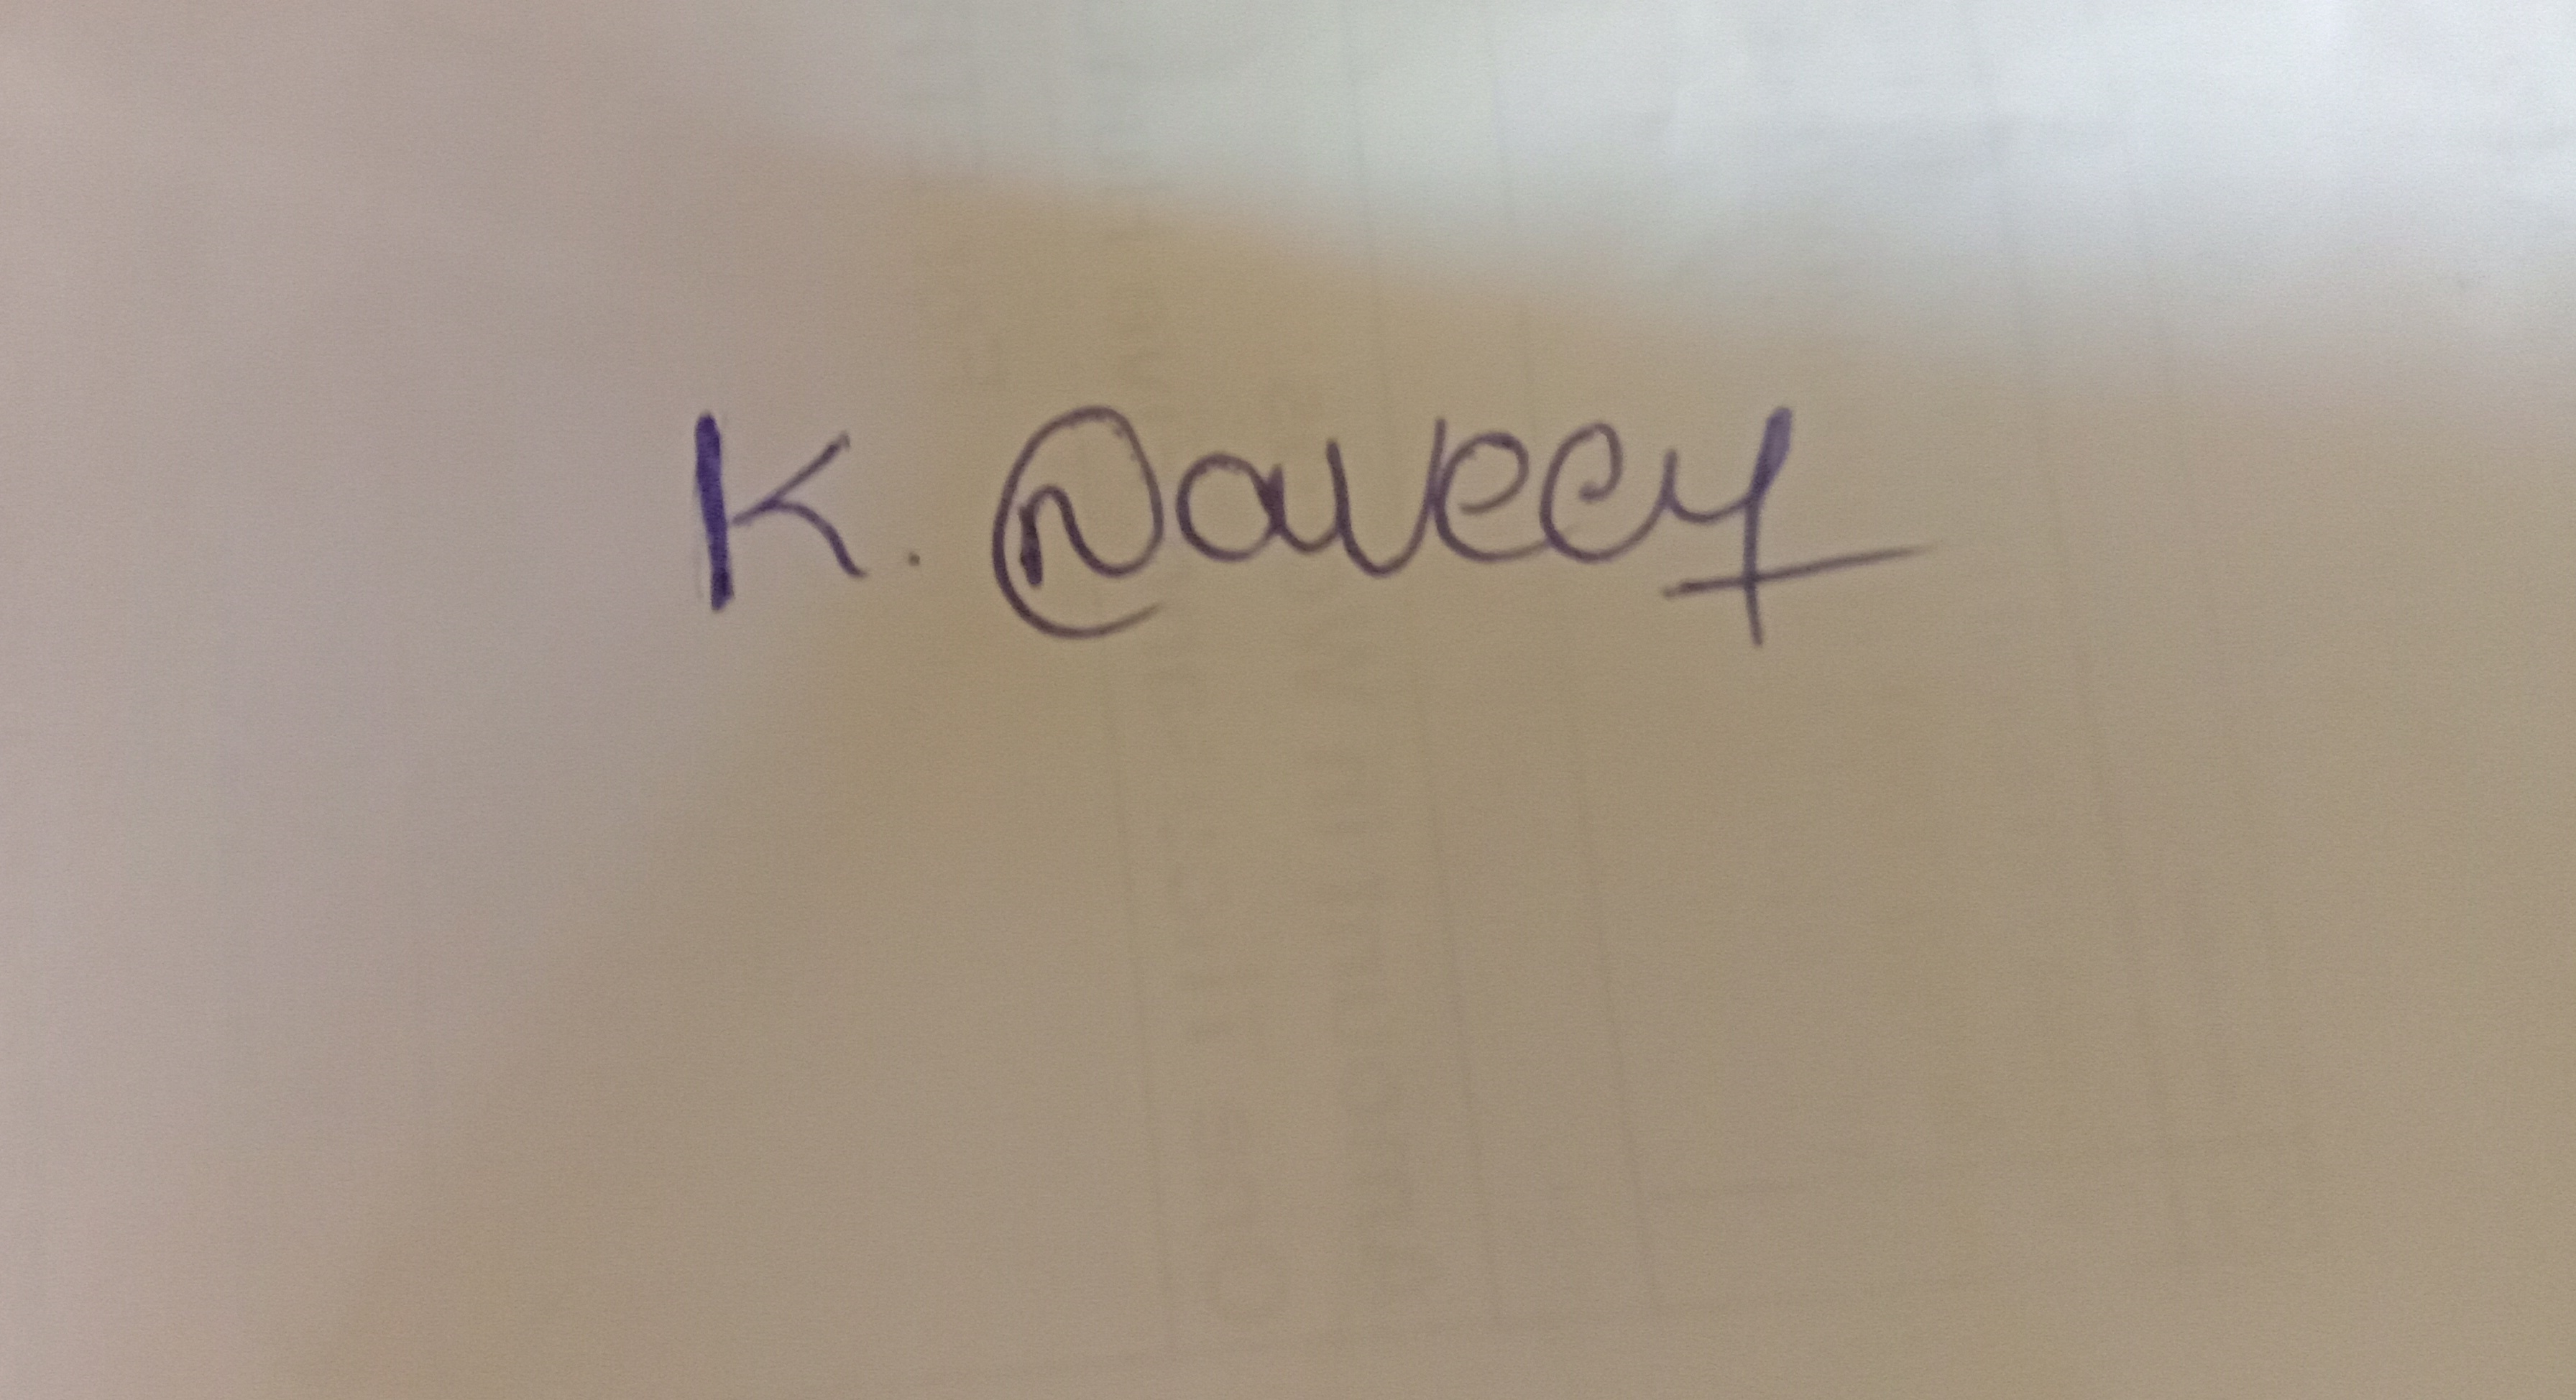 K. Naveen